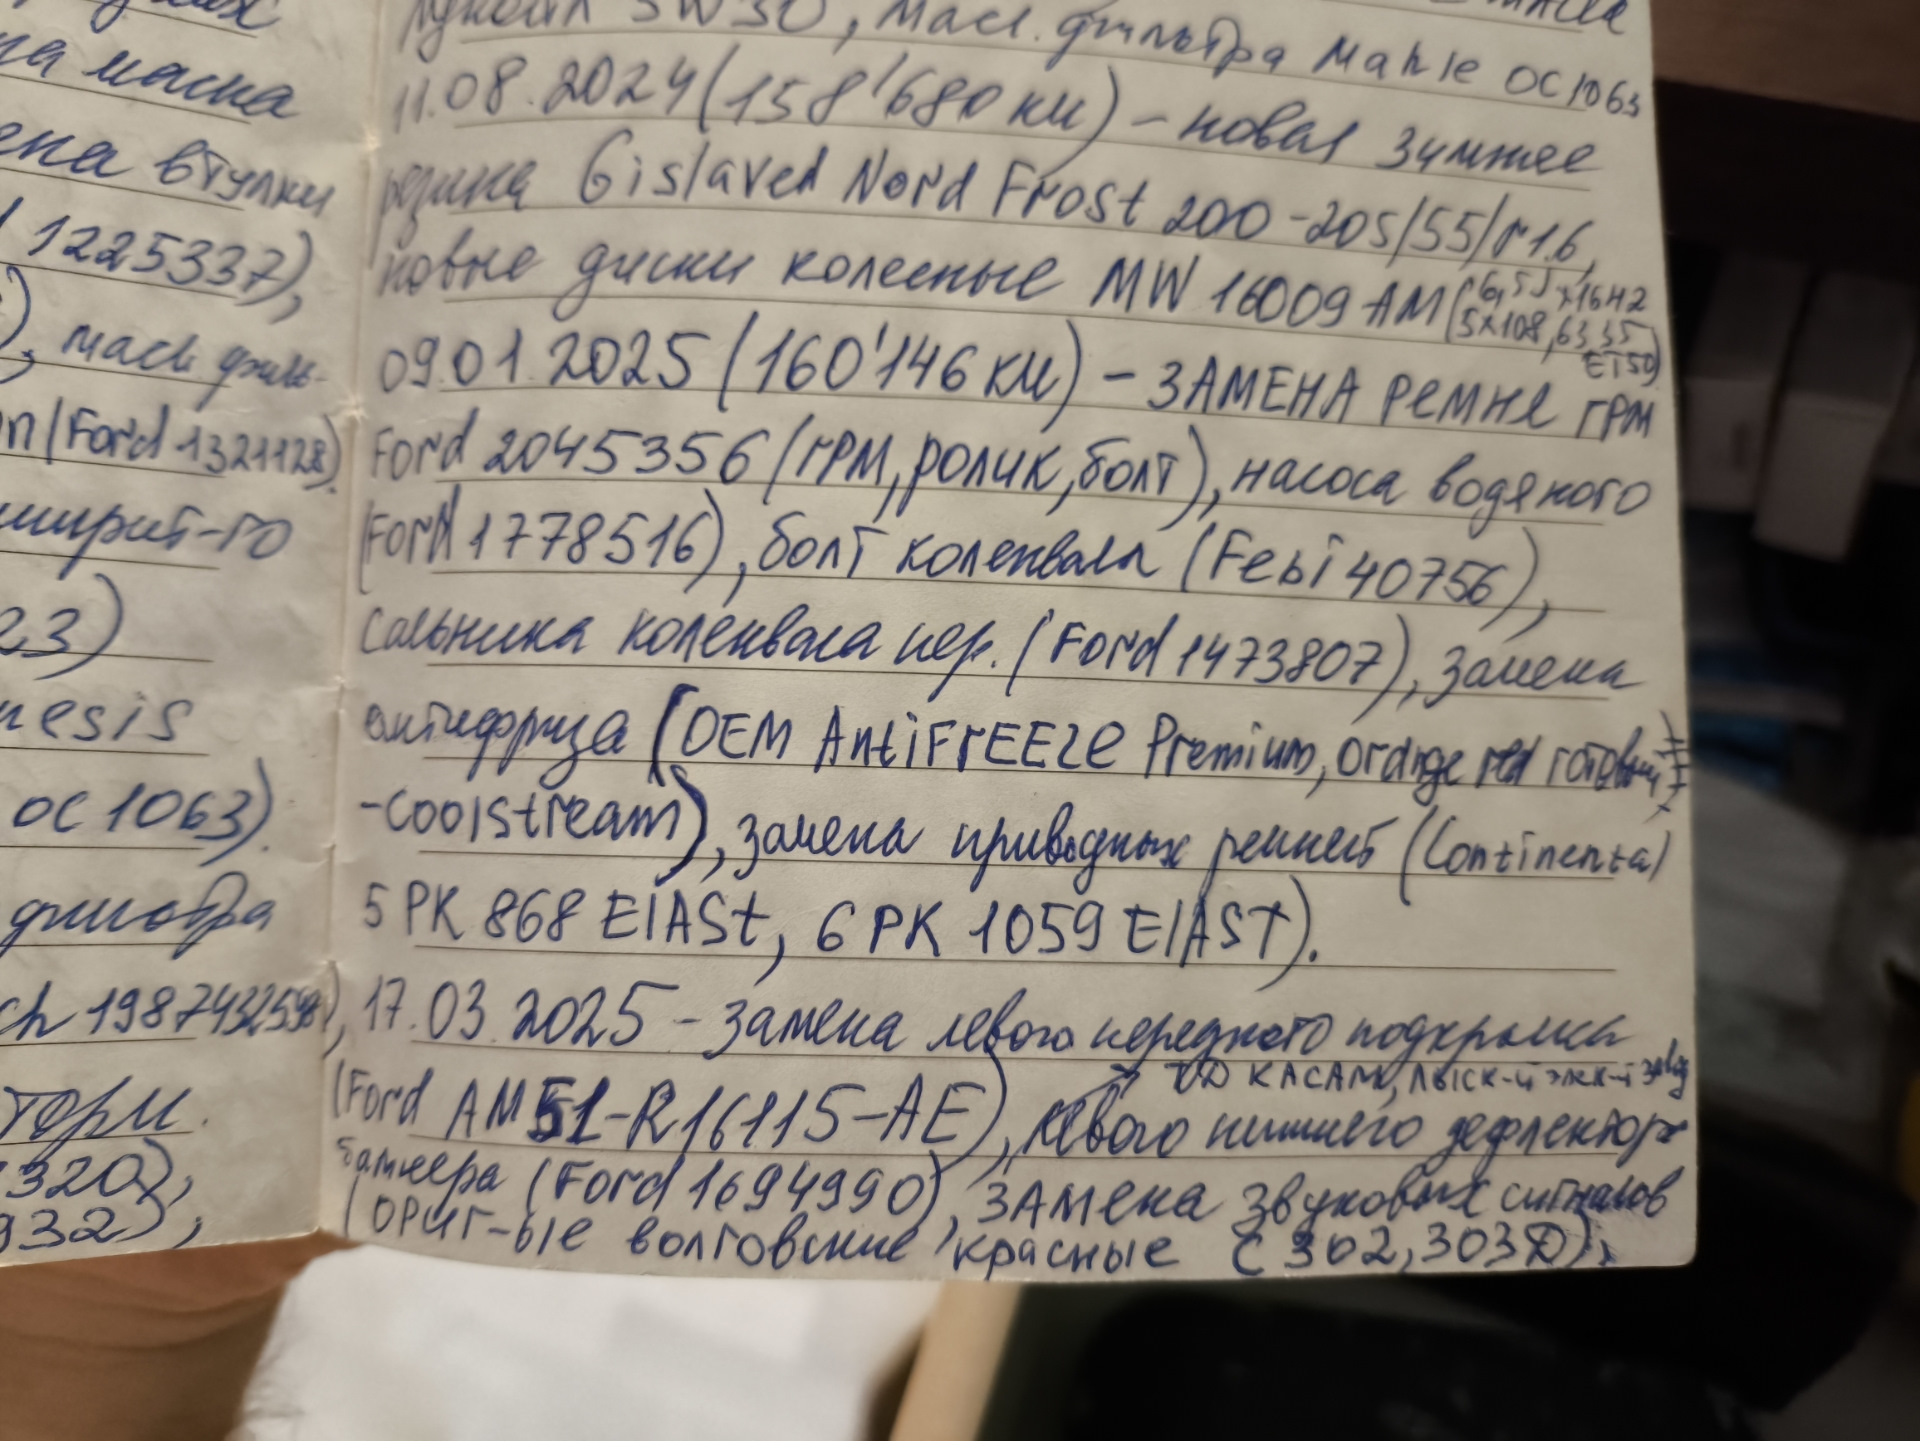 на маска
ена втулки
1225337),
), масл филь-
n (Ford 1321128).
ширит-го
23)
nesis
OC 1063).
фильтра
ch 1987432598),
торм.
320),
932),
Лукойл 5W30, масл. фильтра Mahle OC1063
11.08.2024 (158'680 км) – новая зимнее
резина Gislaved Nord Frost 200 -205/55/r16,
новые диски колесные MW 16009 AM (6,5J x16H2
5x108, 63,35
ET50)
09.01.2025 (160'146 км) – ЗАМЕНА ремня ГРМ
Ford 2045356 (ГРМ, ролик, болт), насоса водяного
(Ford 1778516), болт коленвала (Febi 40756),
сальника коленвала пер. (Ford 1473807), замена
антифриза (OEM AntiFrEEze Premium, orange red готовый
-Coolstream), замена приводных ремней (Continental
5 PK 868 ElASt, 6 PK 1059 ElAST).
17.03.2025 – замена левого переднего подкрылка
КАСАМ,
(Ford AM51-R16115-AE), левого нижнего дефлектора
бампера (Ford 1694990), замена звуковых сигналов
(ОРИГ-ые волговские красные С 302, 303Д),